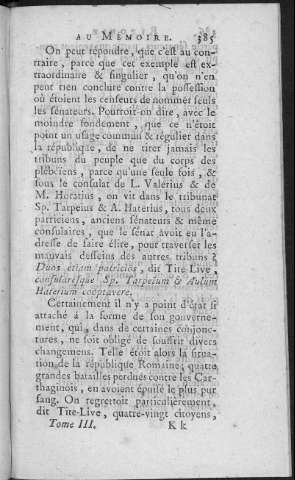 AU MÉMOIRE. 385
On peut répondre, que c'est au con-
traire, parce que cet exemple est ex-
traordinaire & singulier, qu'on n'en
peut rien conclure contre la possession
où étoient les censeurs de nommer seuls
les sénateurs. Pourroit-on dire, avec le
moindre fondement, que ce n'étoit
point un usage commun & régulier dans
la république, de ne tirer jamais les
tribuns du peuple que du corps des
plébéiens, parce qu'une seule fois, &
sous le consulat de L. Valérius & de
M. Horatius, on vit dans le tribunat
Sp. Tarpeïus & A. Haterius, tous deux
patriciens, anciens sénateurs & même
consulaires, que le sénat avoit eu l'a-
dresse de faire élire, pour traverser les
mauvais desseins des autres tribuns ?
Duos etiam patricios, dit Tite-Live,
consularesque Sp. Tarpeïum & Aulum
Haterium cooptavere.
Certainement il n'y a point d'état si
attaché à la forme de son gouverne-
ment, qui, dans de certaines conjonc-
tures, ne soit obligé de souffrir divers
changemens. Telle étoit alors la situa-
tion de la république Romaine; quatre
grandes batailles perdues contre les Car-
thaginois, en avoient épuisé le plus pur
sang. On regrettoit particuliérement,
dit Tite-Live, quatre-vingt citoyens,
Tome III. K k